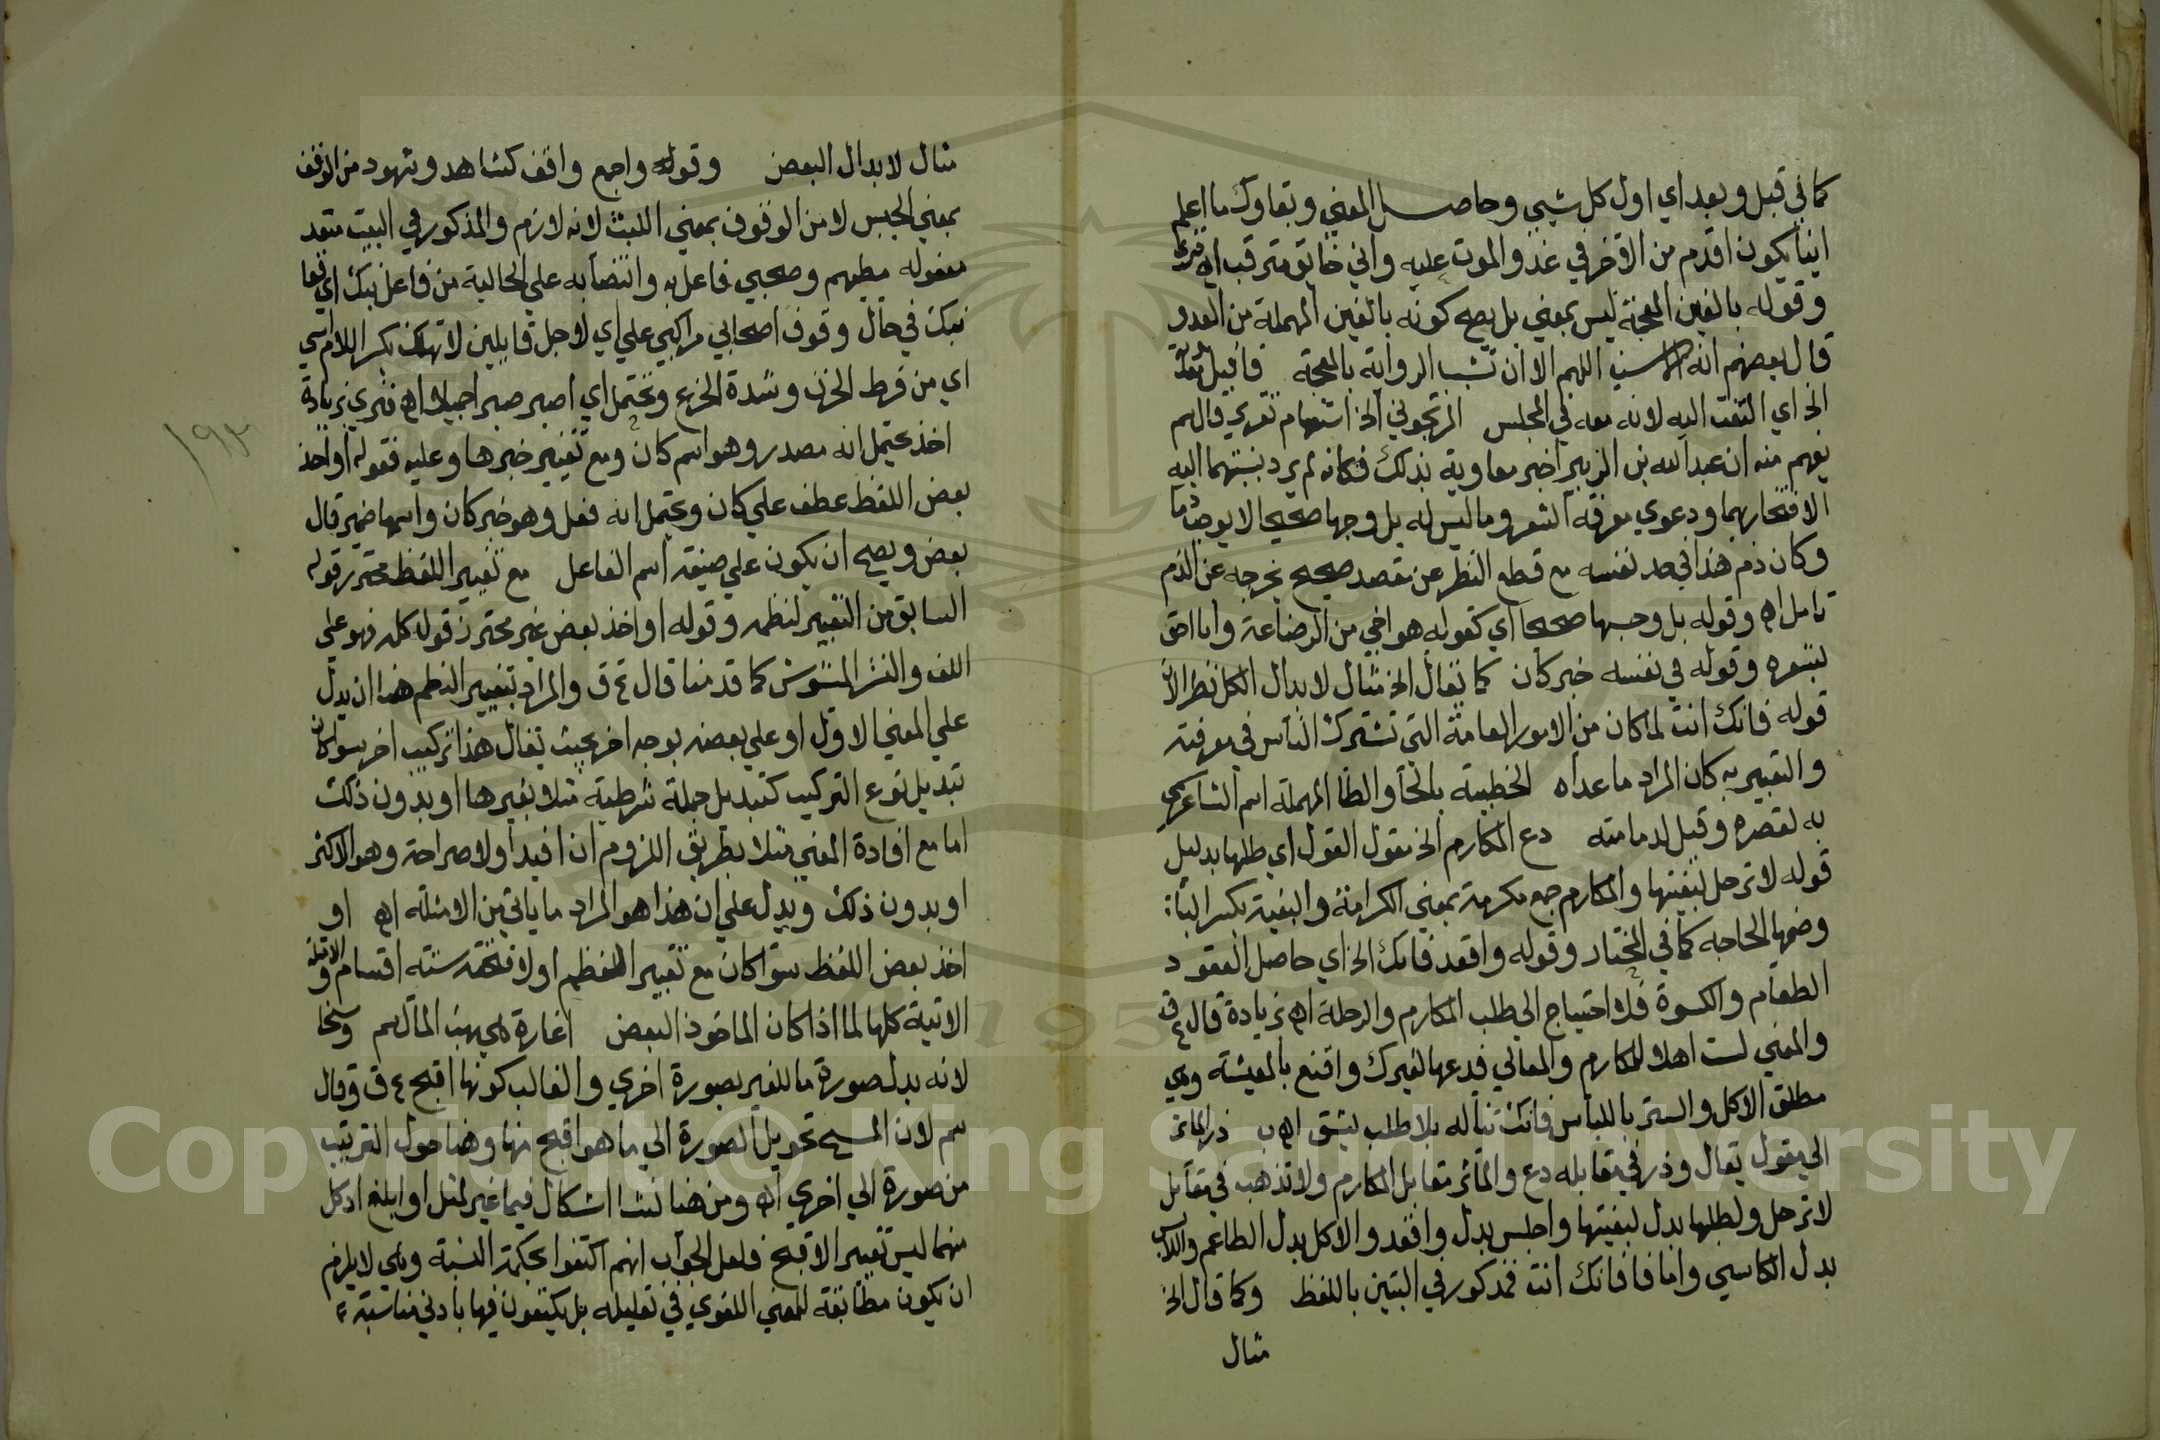 كما في قبل وبعد اي اول كل شيئ وحاصل المعني وبقاوك ما اعلم
اينا يكون اقدم من الاخر في غدو الموت عليه واني خايق مترقب اه
وقوله بالغين المعجمة ليس بمعني بل يصح كونه بالعين المهملة من العدو
قال بعضهم انه الانسب اللهم الا ان تثبت الرواية بالمعجمة فاقبل
الخ اي التفت اليه لانه معه في المجلس الم تخبرني الخ استفهام تقريري قال سم
يفهم منه ان عبدالله بن الزبير اخبر معاوية بذلك فكانه لم يرد بنسبتهما اليه
الافتخار بهما ودعوي معرفة الشعر وما ليس له بل وجها صحيحا لا يوجب ذما
وكان ذم هذا في حد نفسه مع قطع النظر عن مقصد صحيح يخرجه عن الذم
تامل اه وقوله بل وجها صحيحا اي كقوله هو اخي من الرضاعة وانا احق
بشعره وقوله في نفسه خبر كان كما يقال الخ مثال لابدال الكل نظرا لان
قوله فانك انت لما كان من الامور العامة التي تشترك الناس في معرفته
والتعبير به كان المراد ما عداه الحطيئة بالحا والطا المهملة اسم الشاعر سمي
به لقصره وقيل لدمامته دع المكارم الخ مقول القول اي طلبها بدليل
قوله لا ترحل لبغيتها والمكارم جمع مكرمة بمعني الكرامة والبغية بكسر البا
وضمها الحاجة كما في المختار وقوله واقعد فانك الخ اي حاصل القعود
الطعام والكسوة فلا احتياج الي طلب المكارم والرحلة اه بزيادة قال ع ق
والمعني لست اهلا للمكارم والمعالي فدعها لغيرك واقنع بالمعيشة وهي
مطلق الاكل والستر باللباس فانك تناله بلا طلب بشق اه ذر الماثر
الخ مقول يقال وذر في مقابله دع والماثر مقابل المكارم ولا تذهب في مقابل
لا ترحل ولطلبها بدل لبغيتها واجلس بدل واقعد والاكل بدل الطاعم واللابس
بدل الكاسي واما فانك انت فمذكور في البيتين باللفظ وكما قال الخ
مثال
مثال لابدال البعض وقوله واجع واقف كشاهد وشهود من الوقف
بمعني الحبس لا من الوقوف بمعني اللبث لانه لازم والمذكور في البيت متعد
مفعوله مطيهم وصحبي فاعل به وانتصابه علي الحالية من فاعل نبك اي قفا
نبك في حال وقوف اصحابي مراكبي علي اي لاجل قايلين لا تهلك بكسر اللام اسي
اي من فرط الحزن وشدة الجزع وتجمل اي اصبر صبرا جميلا اه فنري بزيادة
اخذ يحتمل انه مصدر وهو اسم كان ومع تغيير خبرها وعليه فقوله او اخذ
بعض اللفظ عطف علي كان ويحتمل انه فعل وهو خبر كان واسمها ضمير قال
بعض ويصح ان يكون علي صيغة اسم الفاعل مع تغيير اللفظ محترز قوله
السابق من التغيير لنظمه وقوله او اخذ بعض غير محترز قوله كله فهو علي
اللف والنشر المشوش كما قدمنا قال ع ق والمراد بتغيير النظم هنا ان يدل
علي المعني الاول او علي بعضه بوجه اخر بحيث يقال هذا تركيب اخر سوا كان
تبديل نوع التركيب كتبديل جملة شرطية مثلا بغيرها او بدون ذلك
اما مع افادة المعني مثلا بطريق اللزوم ان افيد اولا صراحة وهو الاكثر
او بدون ذلك ويدل علي ان هذا هو المراد ما ياتي من الامثلة اه او
اخذ بعض اللفظ سوا كان مع تغيير النظم او لا فتحته ستة اقسام والامثلة
الاتية كلها لما اذا كان الماخوذ البعض اغارة هي نهب المال سم ومسخا
لانه بدل صورة ما للغير بصورة اخري والغالب كونها اقبح ع ق وقال
سم لان المسخ تحويل الصورة الي ما هو اقبح منها وهنا حول الترتيب
من صورة الي اخري اه ومن هنا نشا اشكال فيما غير لمثل او ابلغ اذ كل
منهما ليس تغيير الاقبح فلعل الجواب انهم اكتفوا بحكمة النسبة وهي لا يلزم
ان يكون مطابقة للمعني اللغوي في تعليله بل يكتفون فيها بادني مناسبة
١٩٣
Copyright © King Saud University
1957